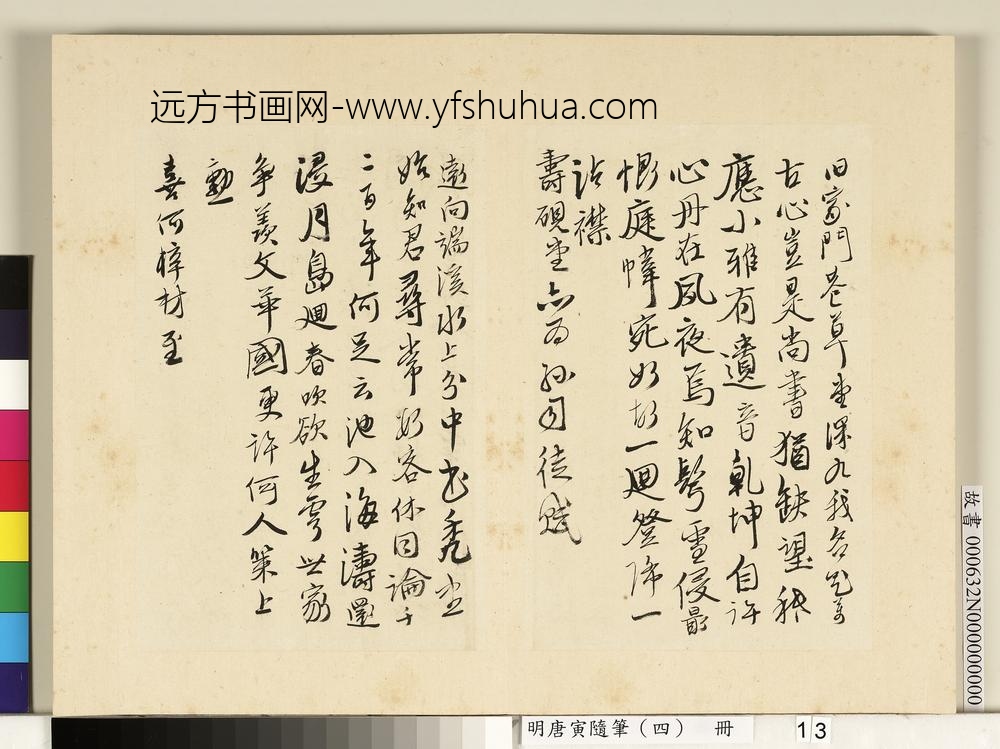 远方书画网-www.yfshuhua.com
旧家門巷草堂深九我名題寄
古心豈是尚書猶缺望秪
應小雅有遺音乾坤自許
心丹在夙夜焉知鬢雪侵最
恨庭幃宛如昨一迴登降一
沾襟
壽硯堂亦為孫司徒賦
遠向端溪水上分中書禿盡
始知君尋常好客休同論千
二百年何足云池入海濤還
浸月島迴春吹欲生雲世家
爭羨文華國更許何人策上
勳
喜何梓材至
故書 000632N000000000
明唐寅隨筆（四） 冊 13